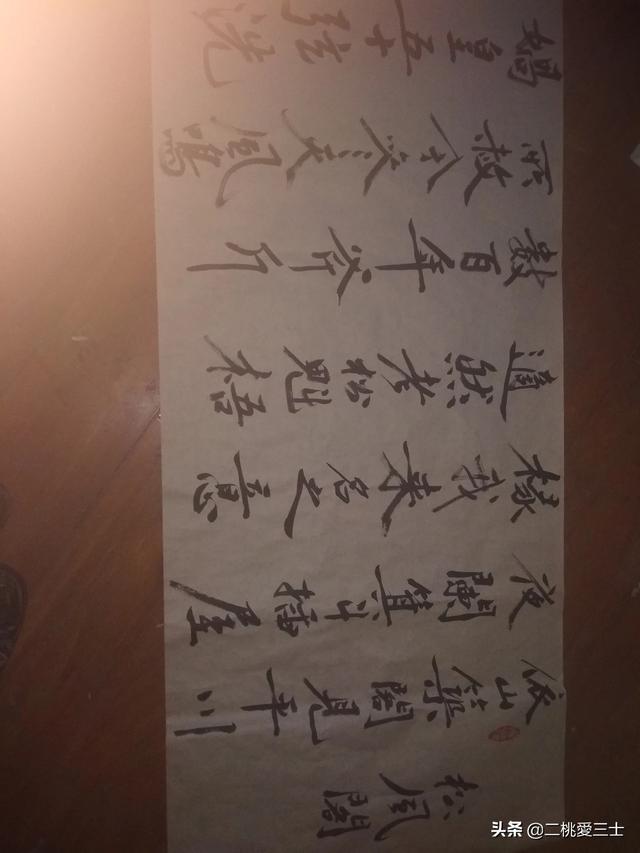 松風閣
依山築閣見平川
夜闌箕斗插屋
椽我來名之意
適然老松魁梧
數百年斧斤
所赦今參天風鳴
媧皇五十弦洗
头条 @二桃愛三士